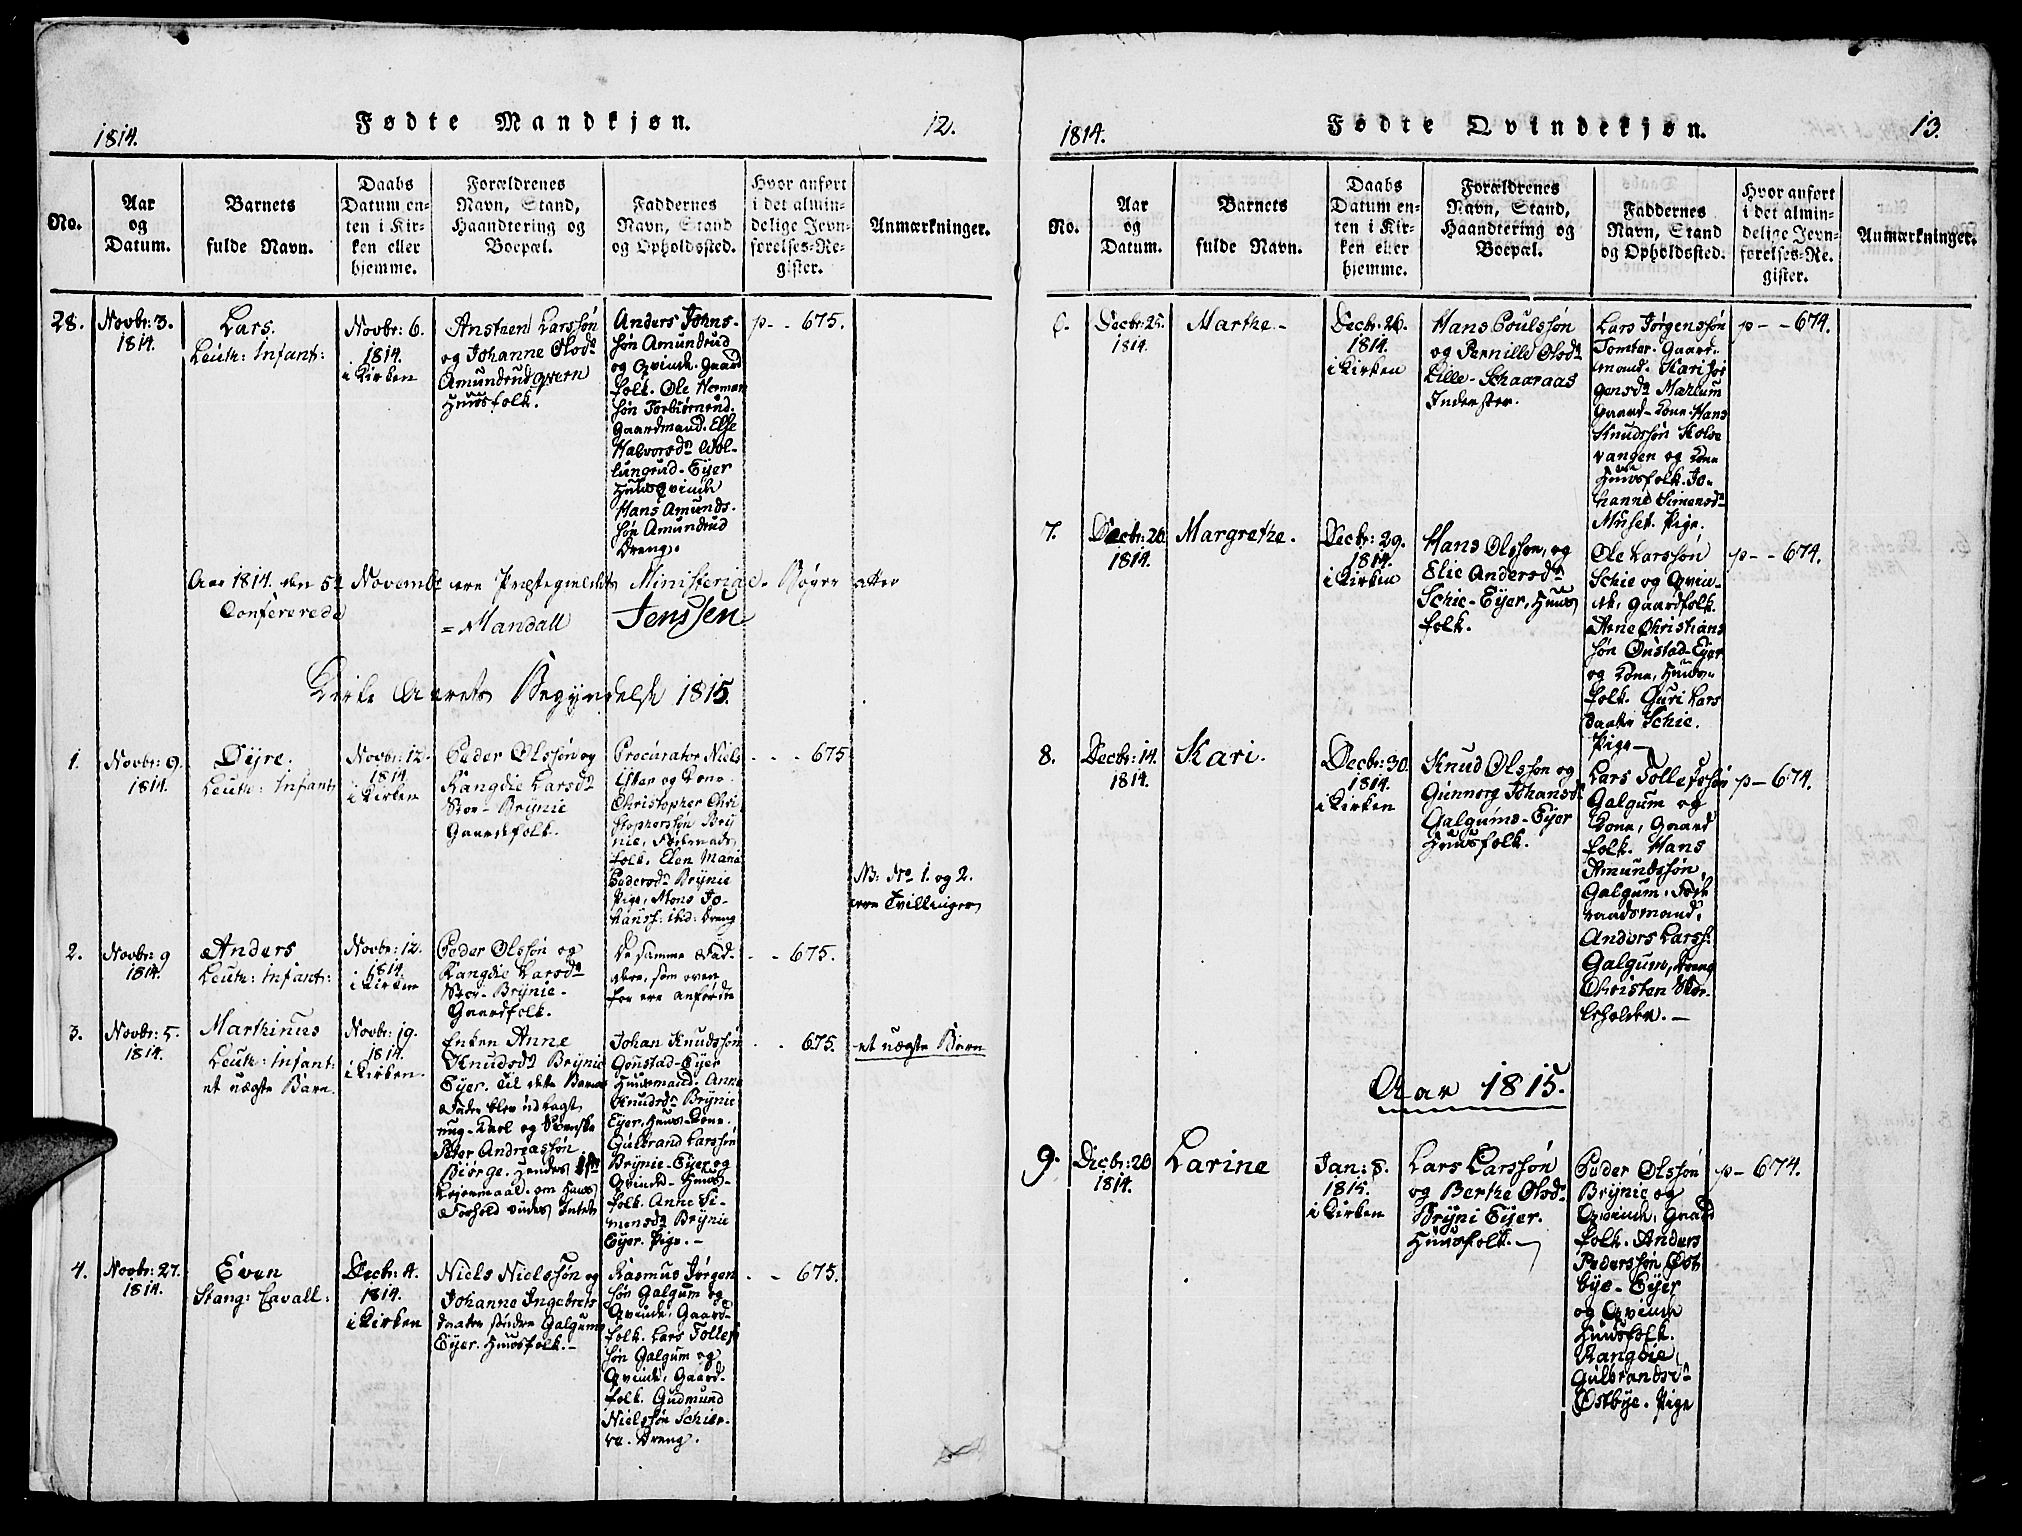 1814.
Fødte Mandkjøn.
12.
No.
Aar
og
Datum.
Barnets
fulde Navn.
Daabs
Datum en-
ten i Kir-
ken eller
hjemme.
Forældrenes
Navn, Stand,
Haandtering og
Boepæl.
Faddernes
Navn, Stand
og Opholdssted.
Hvor anført
i det almin-
delige Jevn-
førelses-Re-
gister.
Anmærkninger.
28.
Novbr: 3.
1814.
Lars.
Leuth: Infant:
Novbr: 6.
1814.
i Kirken
Ansteen Larssøn
og Johanne Olsdr
Amundrudqvern
Huusfolk.
Anders Johns-
søn Amundrud
og Qvinde. Gaard
folk. Ole Herman
søn Torbiørnrud.
Gaardmand. Else
Halvorsdr
lungrud-Eyer
Huusqvinde
Hans Amunds-
søn Amundrud
Dreng.
p- - 675.
Aar 1814. den 5te Novembr ere Præstegieldets Ministerial-Bøger atter
Confererede
=Mandall
Jenssen
Kirke Aarets Begyndelse 1815.
1.
Novbr: 9.
1814.
Syre.
Leuth: Infant:
Novbr: 12.
1814.
i Kirken
Peder Olssøn og
Rangdie Larsdr
Stor-Brynie
Gaardfolk.
Procurator Niels
og Kone.
Christopher Chri
stophersøn Bry
nie, Føderaads
folk. Elen Marie
Pedersdr Brynie
Pige, Mons Jo-
hanss: ibd: Dreng
- - - 675
NB: No 1. og 2.
ere Tvillinger
2.
Novbr: 9
1814.
Anders
Leuth: Infant:
Novbr: 12.
1814.
i Kirken
Peder Olssøn og
Rangdie Larsdr
Stor-Brynie-
Gaardfolk.
De samme Fad-
dere, som oven
for ere anførdte
- - 675.
3.
Novbr: 5.
1814.
Marthinus
Leuth: Infant:
et uægte Barn.
Novbr: 19.
1814.
i Kirken.
Enken Anne
Knudsdr Brynie
Eyer. Til dette Barns
Fader blev udlagt
ung-Karl og Svenske
Peter Andreassøn
Biørge. Hendes 1ste
Leiermaal. om Hans
Forhold vides Intet
Johan Knudssøn
Gonstad-Eyer
Huusmand. Anne
Knudsdr Brynie
Eyer, Huus-Kone.
Gulbrand Larssøn
Brynie-Eyer og
Qvinde- Huus-
folk. Anne Si-
mensdr Brynie
Eyer. Pige.-
- - 675.
et uægte Barn
4.
Novbr: 27.
1814.
Even
Stang: Cavall:
Decbr: 4.
1814.
i Kirken
Niels Nielssøn og
Johanne Ingebrets
daatter søndre Galgum
Eyer. Huusfolk.-
Rasmus Jørgen
søn Galgum og
Qvinde, Gaard-
folk. Lars Tollefs
søn Galgum og
Qvinde, Gaard-
folk. Gudmund
Nielssøn Schier-
ra. Dreng.
- - 675.
1814.
Fødte Qvindekjøn.
13.
No.
Aar
og
Datum.
Barnets
fulde Navn.
Daabs
Datum en-
ten i Kir-
ken eller
hjemme.
Forældrenes
Navn, Stand,
Haandtering og
Boepæl.
Faddernes
Navn, Stand
og Opholdssted.
Hvor anført
i det almin-
delige Jevn-
førelses-Re-
gister.
Anmærkninger.
6.
Decbr: 25.
1814.
Marthe.-
Decbr: 26.
1814.
i Kirken
Hans Poulssøn
og Pernille Olsdr
Lille-Schaaraas
Inderster.
Lars Jørgenssøn
Tomter. Gaard-
mand. Kari Jør
gensdr Marcum
Gaard-Kone. Hans
Knudssøn Kolse
vangen og Kone
Huusfolk. Jo-
hanne Simensdr
Muset. Pige.
p- - 674.
7.
Decbr: 26
1814.
Margrethe.
Decbr: 29.
1814.
i Kirken
Hans Olssøn, og
Elie Andersdr
Schie-Eyer, Huus
folk.
Ole Larssøn
Schie og Qvin-
de, Gaardfolk.
Arne Christians
søn Onstad-Eyer
og Kone, Huus-
folk. Guri Lars
daatter Schie.
Pige-
p- - 674.
8.
Decbr: 14.
1814.
Kari.
Decbr: 30
1814.
i Kirken
Knud Olssøn og
Gunnorg Johansdr
Galgums-Eyer
Huusfolk.
Lars Tollefssøn
Galgum og
Kone, Gaard
folk. Hans
Amundssøn,
Galgum, Føde
raadsmand.
Anders Larss:
Galgum, Dreng
Christen
beholder.-
p- 674.
Aar 1815.
9.
Decbr: 20
1814.
Larine
Jan: 8.
1815.
i Kirken
Lars Larssøn
og Berthe Olsdr
Bryni Eyer.
Huusfolk.-
Peder Olssøn
Brynie og
Qvinde, Gaard
folk. Anders
Pederssøn Øst
bye-Eyer
og Qvinde
Huusfolk.
Rangdie
Gulbrandsdr
Østbye. Pige
p- 674.